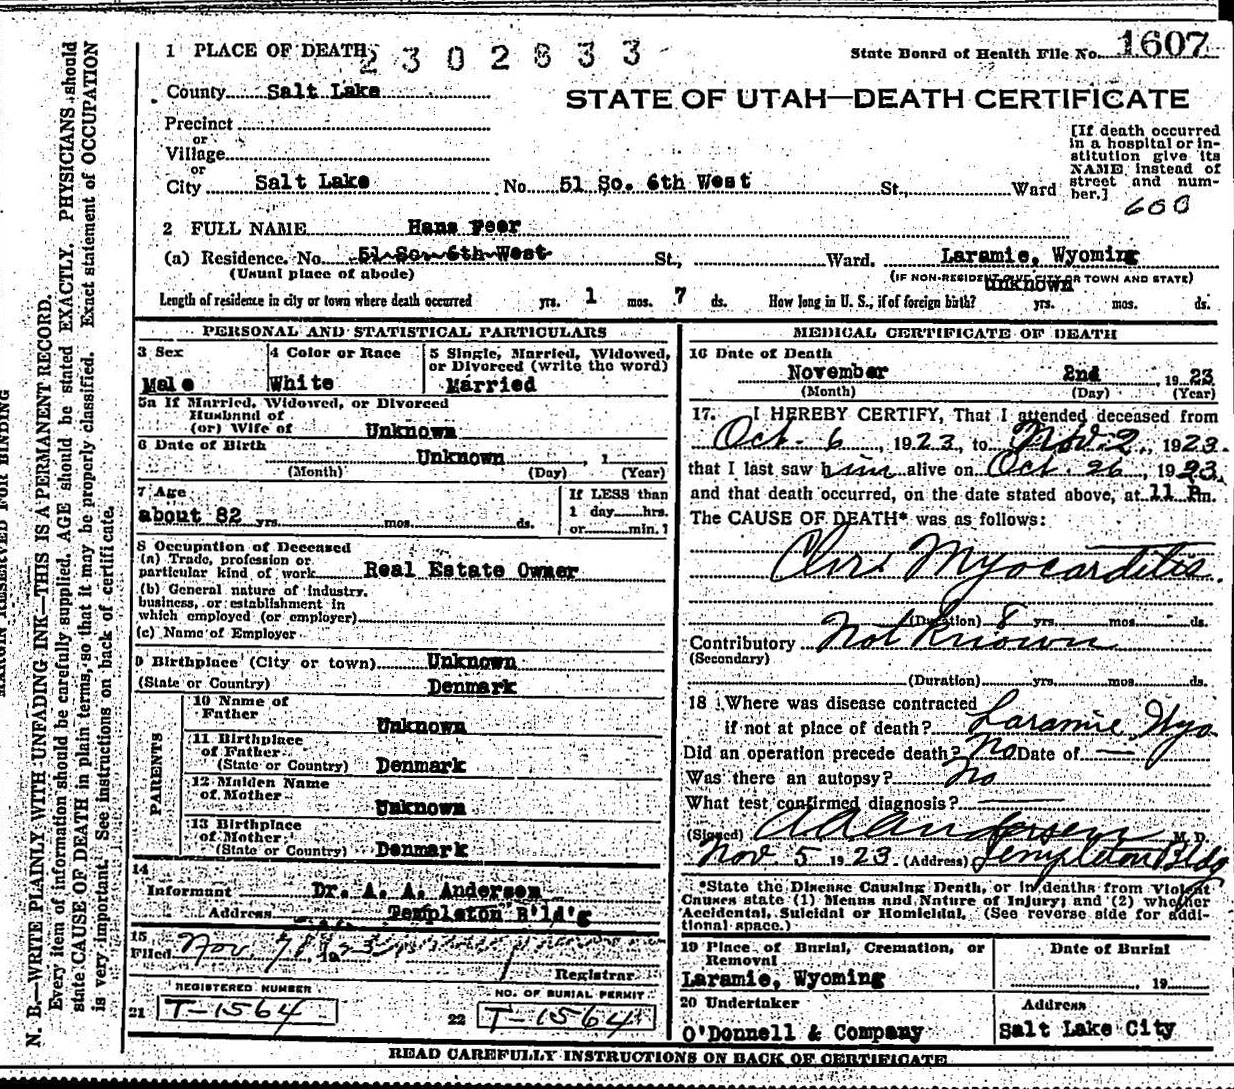 1 PLACE OF DEATH
2302833
State Board of Health File No. 1607
County Salt Lake
STATE OF UTAH—DEATH CERTIFICATE
Precinct
or
Village
or
City Salt Lake No. 51 So. 6th West St., Ward
[If death occurred
in a hospital or in-
stitution give its
NAME instead of
street and num-
ber.]
600
2 FULL NAME Hans Peer
(a) Residence. No. 51 So. 6th West St., Ward. Laramie, Wyoming
(Usual place of abode) (IF NON-RESIDENT GIVE CITY OR TOWN AND STATE)
Length of residence in city or town where death occurred yrs. 1 mos. 7 ds. How long in U. S., if of foreign birth? unknown yrs. mos. ds.
PERSONAL AND STATISTICAL PARTICULARS
3 Sex
Male
4 Color or Race
White
5 Single, Married, Widowed,
or Divorced (write the word)
Married
5a If Married, Widowed, or Divorced
Husband of
(or) Wife of Unknown
6 Date of Birth
Unknown , 1
(Month) (Day) (Year)
7 Age
about 82 yrs. mos. ds.
If LESS than
1 day hrs.
or min.?
8 Occupation of Deceased
(a) Trade, profession or
particular kind of work Real Estate Owner
(b) General nature of industry.
business, or establishment in
which employed (or employer)
(c) Name of Employer
9 Birthplace (City or town) Unknown
(State or Country) Denmark
PARENTS
10 Name of
Father
Unknown
11 Birthplace
of Father
(State or Country) Denmark
12 Maiden Name
of Mother
Unknown
13 Birthplace
of Mother
(State or Country) Denmark
14
Informant Dr. A. A. Andersen
Address Templeton B'ld'g
15
Filed Nov.
Registrar
REGISTERED NUMBER
21 T-1564
NO. OF BURIAL PERMIT
22 T-1564
MEDICAL CERTIFICATE OF DEATH
16 Date of Death
November 2nd , 1923
(Month) (Day) (Year)
17. I HEREBY CERTIFY, That I attended deceased from
Oct. 6, 1923, to Nov. 2, 1923.
that I last saw him alive on Oct. 26, 1923.
and that death occurred, on the date stated above, at 11 P.m.
The CAUSE OF DEATH* was as follows:
Chr. Myocarditis.
(Duration) 8 yrs. mos. ds.
Contributory Not Known
(Secondary)
(Duration) yrs. mos. ds.
18 Where was disease contracted
if not at place of death? Laramie Wyo
Did an operation precede death? No Date of —
Was there an autopsy? No
What test confirmed diagnosis? —
(Signed) A A Andersen M. D.
Nov 5 1923 (Address) Templeton Bldg
*State the Disease Causing Death, or in deaths from Violent
Causes state (1) Means and Nature of Injury; and (2) whether
Accidental, Suicidal or Homicidal. (See reverse side for addi-
tional space.)
19 Place of Burial, Cremation, or
Removal
Laramie, Wyoming
Date of Burial
19
20 Undertaker
O'Donnell & Company
Address
Salt Lake City
READ CAREFULLY INSTRUCTIONS ON BACK OF CERTIFICATE
MARGIN RESERVED FOR BINDING
N. B.—WRITE PLAINLY WITH UNFADING INK—THIS IS A PERMANENT RECORD.
Every item of information should be carefully supplied. AGE should be stated EXACTLY. PHYSICIANS should
state CAUSE OF DEATH in plain terms, so that it may be properly classified. Exact statement of OCCUPATION
is very important. See instructions on back of certificate.